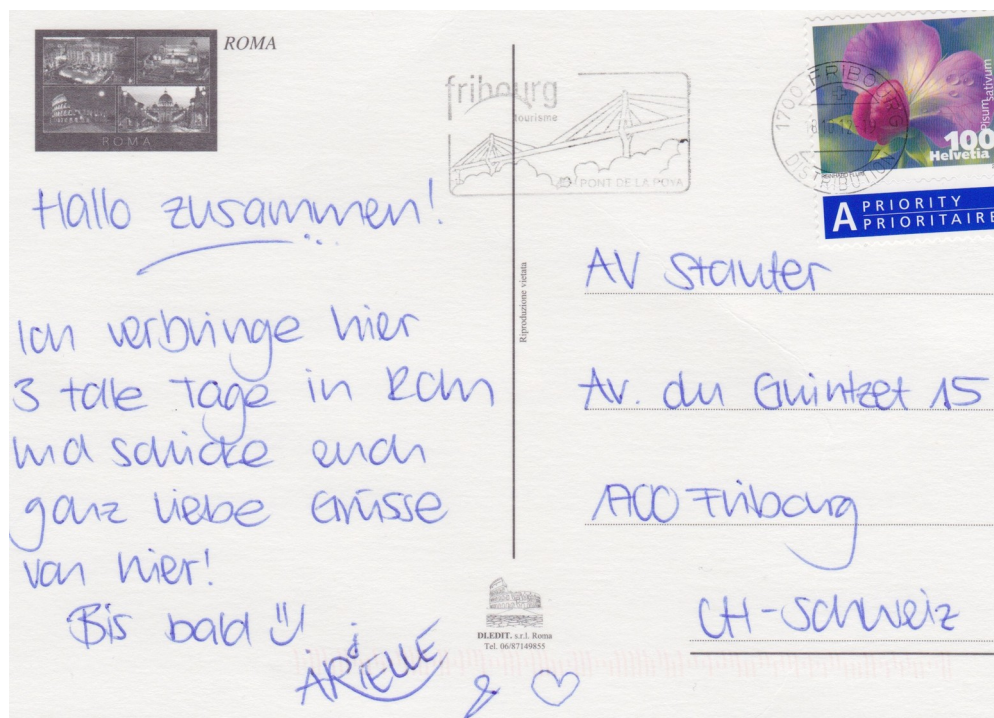 ROMA
ROMA
fribourg
tourisme
PONT DE LA POYA
1700 FRIBOURG
DISTRIBUTION
Pisum sativum
100
Helvetia
A PRIORITY
PRIORITAIRE
Hallo zusammen!
Ich verbringe hier
3 tolle Tage in Rom
und schicke euch
ganz liebe Grüsse
von hier!
Bis bald
ARIELLE
&
Riproduzione vietata
AV Staufer
Av. du Guintzet 15
1700 Fribourg
CH-Schweiz
DI.EDIT. s.r.l. Roma
Tel. 06/87149855